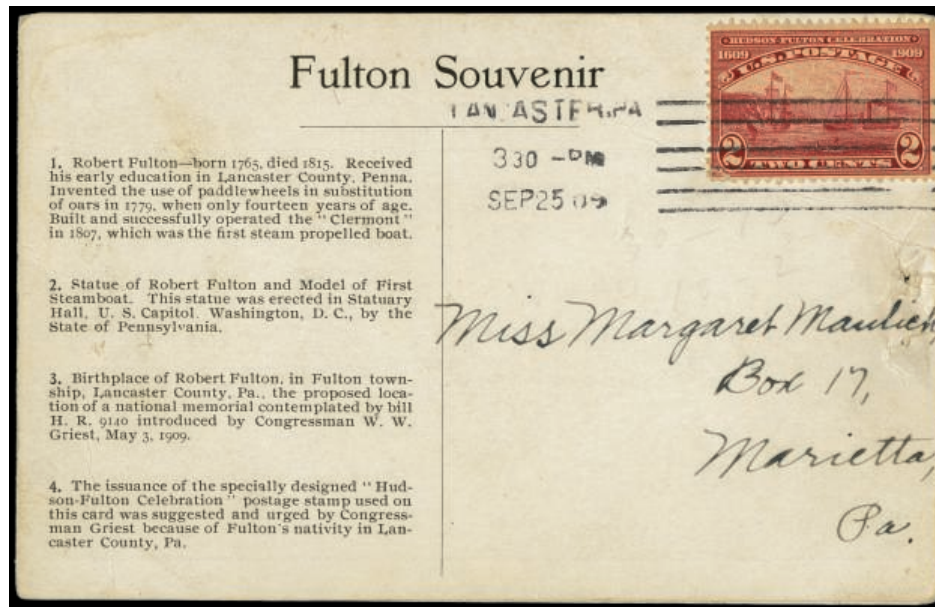 Fulton Souvenir
HUDSON-FULTON CELEBRATION
1609 1909
U.S. POSTAGE
2 TWO CENTS 2
LANCASTER, PA
330 -PM
SEP 25 09
1. Robert Fulton—born 1765, died 1815. Received
his early education in Lancaster County, Penna.
Invented the use of paddlewheels in substitution
of oars in 1779, when only fourteen years of age.
Built and successfully operated the "Clermont"
in 1807, which was the first steam propelled boat.
2. Statue of Robert Fulton and Model of First
Steamboat. This statue was erected in Statuary
Hall, U. S. Capitol. Washington, D. C., by the
State of Pennsylvania.
3. Birthplace of Robert Fulton, in Fulton town-
ship, Lancaster County, Pa., the proposed loca-
tion of a national memorial contemplated by bill
H. R. 9140 introduced by Congressman W. W.
Griest, May 3, 1909.
4. The issuance of the specially designed "Hud-
son-Fulton Celebration" postage stamp used on
this card was suggested and urged by Congress-
man Griest because of Fulton's nativity in Lan-
caster County, Pa.
Miss Margaret
Box 17,
Marietta,
Pa.